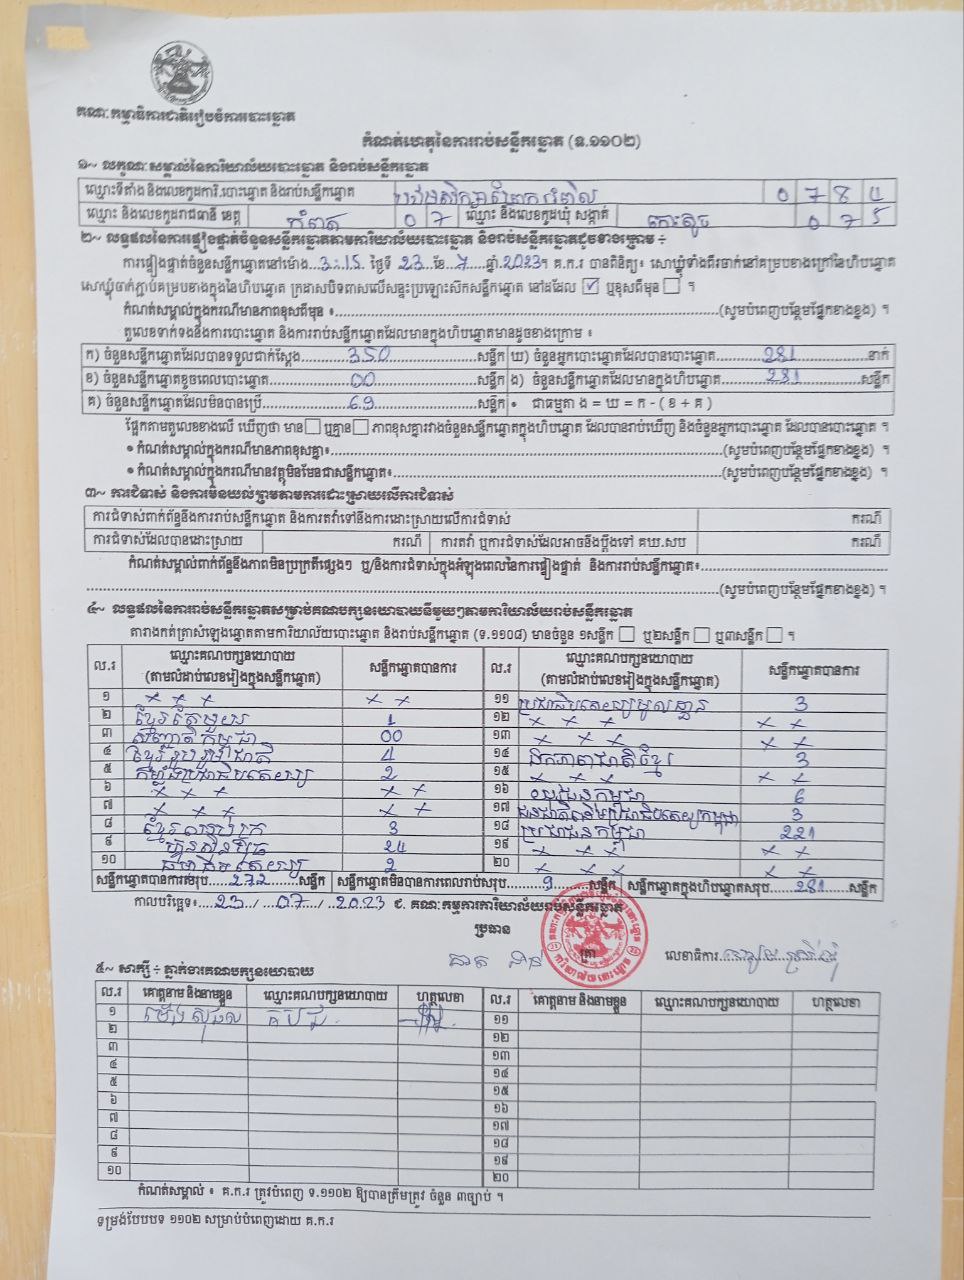 គណៈកម្មាធិការជាតិរៀបចំការបោះឆ្នោត
កំណត់ហេតុនៃការរាប់សន្លឹកឆ្នោត (ទ.១១០២)
១~ លក្ខណៈសម្គាល់នៃការិយាល័យបោះឆ្នោត និងរាប់សន្លឹកឆ្នោត
ឈ្មោះទីតាំង និងលេខកូដការិ.បោះឆ្នោត និងរាប់សន្លឹកឆ្នោត 0 7 8 4
ឈ្មោះ និងលេខកូដរាជធានី ខេត្ត កំពត 0 7 ឈ្មោះ និងលេខកូដឃុំ សង្កាត់ កោះតូច 0 7 5
២~ លទ្ធផលនៃការផ្ទៀងផ្ទាត់ចំនួនសន្លឹកឆ្នោតតាមការិយាល័យបោះឆ្នោត និងរាប់សន្លឹកឆ្នោតដូចខាងក្រោម ÷
ការផ្ទៀងផ្ទាត់ចំនួនសន្លឹកឆ្នោតនៅម៉ោង...3:15 ថ្ងៃទី 23...ខែ...7...ឆ្នាំ.2023។ គ.ក.រ បានពិនិត្យ៖ សោឃ្លុំទាំងពីរចាក់នៅគម្របខាងក្រៅនៃហិបឆ្នោត
សោឃ្លុំចាក់ភ្ជាប់គម្របខាងក្នុងនៃហិបឆ្នោត ក្រដាសបិទពាសលើសន្ទះប្រឡោះសឹកសន្លឹកឆ្នោត នៅដដែល ☑ ឬខុសពីមុន ☐ ។
កំណត់សម្គាល់ក្នុងករណីមានភាពខុសពីមុន ៖..........(សូមបំពេញបន្ថែមផ្នែកខាងខ្នង) ។
តួលេខទាក់ទងនឹងការបោះឆ្នោត និងការរាប់សន្លឹកឆ្នោតដែលមានក្នុងហិបឆ្នោតមានដូចខាងក្រោម ៖
ក) ចំនួនសន្លឹកឆ្នោតដែលបានទទួលជាក់ស្តែង......350......សន្លឹក ឃ) ចំនួនអ្នកបោះឆ្នោតដែលបានបោះឆ្នោត......281......នាក់
ខ) ចំនួនសន្លឹកឆ្នោតខូចពេលបោះឆ្នោត......00......សន្លឹក ង) ចំនួនសន្លឹកឆ្នោតដែលមានក្នុងហិបឆ្នោត......281......សន្លឹក
គ) ចំនួនសន្លឹកឆ្នោតដែលមិនបានប្រើ......69......សន្លឹក • ជាធម្មតា ង = ឃ = ក - ( ខ + គ )
ផ្អែកតាមតួលេខខាងលើ ឃើញថា មាន ☐ ឬគ្មាន ☐ ភាពខុសគ្នារវាងចំនួនសន្លឹកឆ្នោតក្នុងហិបឆ្នោត ដែលបានរាប់ឃើញ និងចំនួនអ្នកបោះឆ្នោត ដែលបានបោះឆ្នោត ។
• កំណត់សម្គាល់ក្នុងករណីមានភាពខុសគ្នា៖..........(សូមបំពេញបន្ថែមផ្នែកខាងខ្នង) ។
• កំណត់សម្គាល់ក្នុងករណីមានវត្ថុមិនមែនជាសន្លឹកឆ្នោត៖..........(សូមបំពេញបន្ថែមផ្នែកខាងខ្នង) ។
៣~ ការជំទាស់ និងការមិនយល់ព្រមតាមការដោះស្រាយលើការជំទាស់
ការជំទាស់ពាក់ព័ន្ធនឹងការរាប់សន្លឹកឆ្នោត និងការតវ៉ាទៅនឹងការដោះស្រាយលើការជំទាស់ ករណី
ការជំទាស់ដែលបានដោះស្រាយ ករណី ការតវ៉ា ឬការជំទាស់ដែលអាចនឹងប្តឹងទៅ គឃ.សប ករណី
កំណត់សម្គាល់ពាក់ព័ន្ធនឹងភាពមិនប្រក្រតីផ្សេងៗ ឬ/និងការជំទាស់ក្នុងអំឡុងពេលនៃការផ្ទៀងផ្ទាត់ និងការរាប់សន្លឹកឆ្នោត៖..........
..........(សូមបំពេញបន្ថែមផ្នែកខាងខ្នង) ។
៤~ លទ្ធផលនៃការរាប់សន្លឹកឆ្នោតសម្រាប់គណបក្សនយោបាយនីមួយៗតាមការិយាល័យរាប់សន្លឹកឆ្នោត
តារាងកត់ត្រាសំឡេងឆ្នោតតាមការិយាល័យបោះឆ្នោត និងរាប់សន្លឹកឆ្នោត (ទ.១១០៨) មានចំនួន ១សន្លឹក ☐ ឬ២សន្លឹក ☐ ឬ៣សន្លឹក ☐ ។
ល.រ ឈ្មោះគណបក្សនយោបាយ (តាមលំដាប់លេខរៀងក្នុងសន្លឹកឆ្នោត) សន្លឹកឆ្នោតបានការ ល.រ ឈ្មោះគណបក្សនយោបាយ (តាមលំដាប់លេខរៀងក្នុងសន្លឹកឆ្នោត) សន្លឹកឆ្នោតបានការ
១ x x x x x ១១ ប្រជាធិបតេយ្យមូលដ្ឋាន 3
២ ខ្មែរតែមួយ 1 ១២ x x x x x
៣ សញ្ជាតិកម្ពុជា 00 ១៣ x x x x x
៤ ខ្មែររួបរួមជាតិ 4 ១៤ ជនជាតិខ្មែរ 3
៥ កម្លាំងប្រជាធិបតេយ្យ 2 ១៥ x x x x x
៦ x x x x x ១៦ យុវជនកម្ពុជា 6
៧ x x x x x ១៧ ជនជាតិដើមប្រជាធិបតេយ្យកម្ពុជា 3
៨ ខ្មែរឈប់ក្រ 3 ១៨ ប្រជាជនកម្ពុជា 221
៩ ហ៊្វុនស៊ិនប៉ិច 24 ១៩ x x x x x
១០ ធម្មាធិបតេយ្យ 2 ២០ x x x x x
សន្លឹកឆ្នោតបានការសរុប......272......សន្លឹក សន្លឹកឆ្នោតមិនបានការពេលរាប់សរុប......9......សន្លឹក សន្លឹកឆ្នោតក្នុងហិបឆ្នោតសរុប......281......សន្លឹក
កាលបរិច្ឆេទ៖...23.../...07.../...2023 ជ. គណៈកម្មការការិយាល័យរាប់សន្លឹកឆ្នោត
ប្រធាន ត្រា លេខាធិការ
៥~ សាក្សី ÷ ភ្នាក់ងារគណបក្សនយោបាយ
ល.រ គោត្តនាម និងនាមខ្លួន ឈ្មោះគណបក្សនយោបាយ ហត្ថលេខា ល.រ គោត្តនាម និងនាមខ្លួន ឈ្មោះគណបក្សនយោបាយ ហត្ថលេខា
១ ១១
២ ១២
៣ ១៣
៤ ១៤
៥ ១៥
៦ ១៦
៧ ១៧
៨ ១៨
៩ ១៩
១០ ២០
កំណត់សម្គាល់ ៖ គ.ក.រ ត្រូវបំពេញ ទ.១១០២ ឱ្យបានត្រឹមត្រូវ ចំនួន ៣ច្បាប់ ។
ទម្រង់បែបបទ ១១០២ សម្រាប់បំពេញដោយ គ.ក.រ